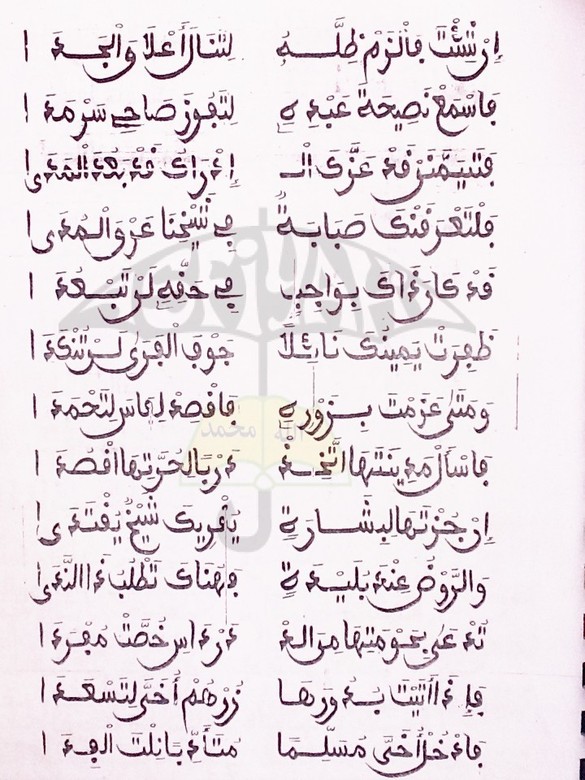 إن شئت فالزم ظلـه لتنال أعلا والجدا
فاسمع نصيحة عبده لتفوز صاحي سرمدا
فتيممن قد عزك الـ إدراك قد بعد المدى
فلتعرفنك صبابة في شيخنا
قد كان ذاك بواجب في حقه لن تبعدا
ظفرت يمينك نائلا جوف القرى لن تنكدا
ومتى عزمت بزوره فاقصد لفاس لتحمدا
فاسأل مدينتها اتخذ دربا لحرتها اقصدا
إن جزتها لبشارة يقريك شيخ يفتدى
والروض عند بليدة فهناك تطلب ذا الندى
تدعى بحومتها من الـ درداس خصت مفردا
فإذا أتيت بدورها زرهم أخي لتسعدا
فادخل أخي مسلما متأدبا نلت الفدا